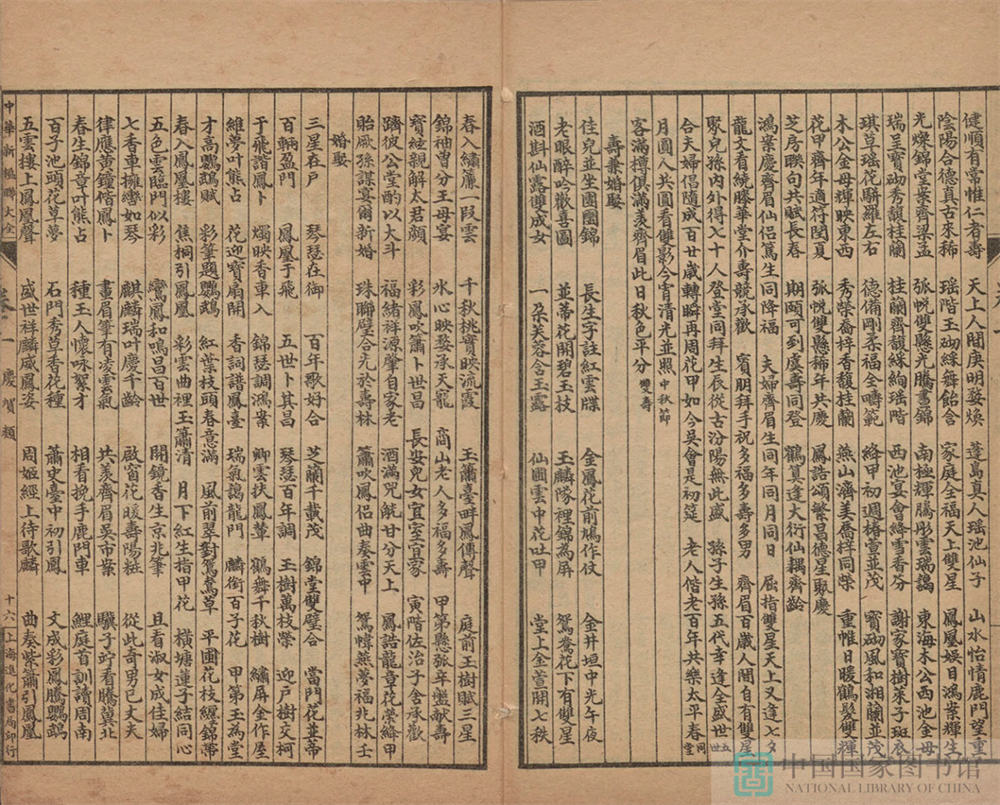 健順有常惟仁者壽 天上人間庚明婺煥 蓬島真人瑤池仙子 山水怡情鹿門望重
陰陽合德真古來稀 瑤階玉砌綵舞飴含 家庭全福天上雙星 鳳凰娛日鴻案輝生
光燦錦堂案齊梁孟 張帨雙懸光騰書錦 南極輝騰彤雲瑞靄 東海木公西池金母
瑞呈寶砌秀馥桂蘭 桂蘭齊馥綵絢瑶階 西池宴會絳雪香芬 謝家寶樹萊子斑衣
琪草瑶花駢羅左右 德備剛柔福全疇範 絳甲初週椿萱並茂 寶砌風和湘蘭並茂
木公金母輝映東西 秀榮喬梓香馥桂蘭 燕山濟美喬梓同榮 重帷日暖鶴髮雙輝
花甲齊年適符閏夏 張帨雙懸稀年共慶 鳳誥頌繁昌德星聚慶
芝房映句共賦長春 期頤可到虞壽同登 鶴算逢大衍仙耦齊齡
鴻案慶齊眉仙侶篤生同降福 夫婦齊眉生同年同月同日 屈指雙星天上又逢七夕
龍文看繞膝華堂介壽競承歡 賓朋拜手祝多福多壽多男 齊眉百歲人間自有雙星
聚兒孫内外得七十人登堂同拜生辰從古汾陽無此盛 孫子生孫五代幸逢全盛世 五世
合夫婦倡隨成百廿歲轉瞬再周花甲如今吳會是初筵 老人偕老百年共樂太平春 同堂
月圓人共圓看雙影今宵清光並照 中秋節
客滿樽俱滿羨齊眉此日秋色平分 雙壽
壽兼婚娶
佳兒並坐團圞錦 長生字註紅雲牒 金鳳花前鳩作伏 金井垣中光午夜
老眼醉吟歡喜圖 並蒂花開碧玉枝 玉麟隊裡錦為屏 鴛鴦花下有雙星
酒斟仙露雙成女 一朵芙蓉含玉露 仙圃雲中花吐甲 堂上金萱開七秩
春入繡簾一段雲 千秋桃實映流霞 玉簫臺畔鳳傳聲 庭前玉樹賦三星
錦袖曾分王母宴 冰心映婺承天寵 商山老人多福多壽 甲第懸弧年盤獻壽
寶絰親解太君顔 彩鳳吹簫卜世昌 長安兒女宜室宜家 寅階佐治子舍承歡
躋彼公堂酌以大斗 福緒祥源肇自家老 酒滿兕觥甘分天上 鳳誥龍章花縈絳甲
貽厥孫謀宴爾新婚 珠聯璧合光於壽林 簫吹鳳侶曲奏雲中 鴛幃燕夢福兆林壬
婚娶
三星在戶 琴瑟在御 百年歌好合 芝蘭千載茂 錦堂雙璧合 當門花並蒂
百輛盈門 鳳凰于飛 五世卜其昌 琴瑟百年調 玉樹萬枝榮 迎戶樹交柯
于飛諧鳳卜 燭映香車入 錦瑟調鴻案 卿雲扶鳳輦 鶴舞千秋樹 繡屏金作屋
維夢叶熊占 花迎寶扇開 香詞譜鳳臺 瑞氣靄龍門 麟銜百子花 甲第玉為堂
才高鸚鵡賦 彩筆題鸚鵡 紅葉枝頭春意滿 風前翠對鴛鴦草 平圃花枝纏錦蒂
春入鳳凰樓 焦桐引鳳凰 彩雲曲裡玉簫清 月下紅生指甲花 橫塘蓮子結同心
五色雲臨門似彩 鸞鳳和鳴昌百世 開鏡香生京兆筆 且看淑女成佳婦
七香車擁轡如琴 麒麟瑞叶慶千齡 啟窗花暖壽陽粧 從此奇男已丈夫
律應黃鐘偕鳳卜 畫眉筆有凌雲氣 共羨齊眉吳市案 驥子竚看騰冀北
春生錦章叶熊占 種玉人懷咏絮才 相看挽手鹿門車 鯉庭首訓讀周南
百子池頭花草夢 石門秀草香花種 蕭史臺中初引鳳 文成彩鳳騰鸚鵡
五雲樓上鳳凰聲 盛世祥麟威鳳姿 周姬經上待歌麟 曲奏紫簫引鳳凰
中華新楹聯大全
慶賀類
十六
上海進化書局印行
中国国家图书馆
NATIONAL LIBRARY OF CHINA